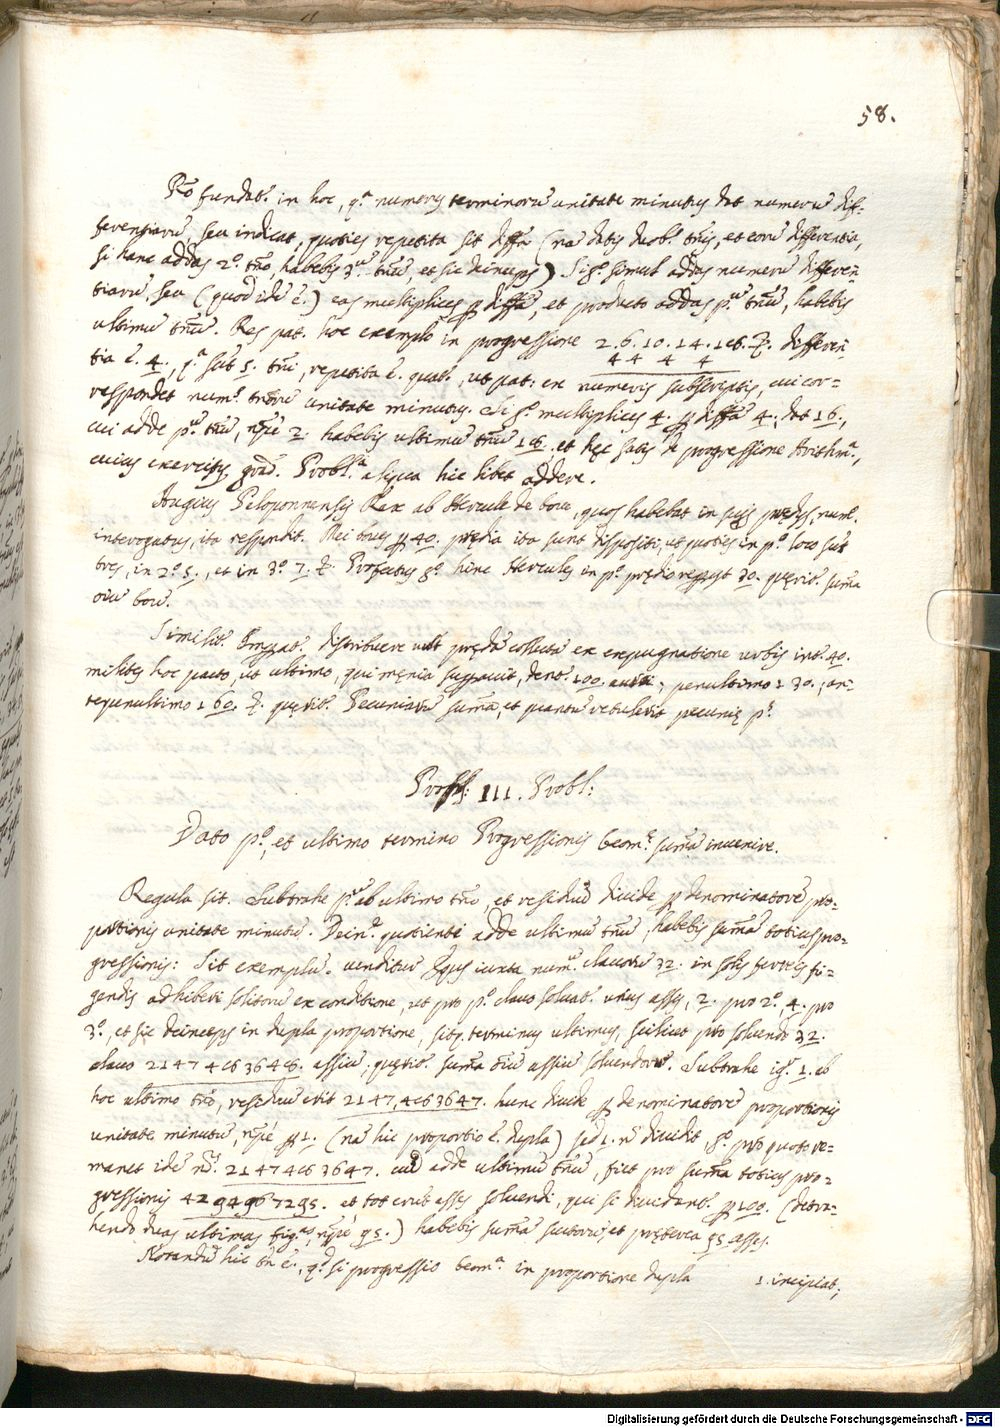 58.
Ro fundat. in hoc, q.a numerus terminorū unitate minutus det numerū dif-
ferentiarū, seu indicat, quoties repetita sit diffā (nā datis duob. tris, et eorū differentia,
si hanc addas 2.o tno, habebis 3.um tnū, et sic deinceps) Sig.r simul addas numerū differen
tiarū, seu (quod idē ē.) eas multiplices p diffā, et producto addas p.um tnū, habebis
ultimū tnū. Res pat. hoc exemplo in progressione 2. 6. 10. 14. 18. &. differen
4 4 4 4
tia ē. 4., q.a sūt 5. tni, repetita ē. quat., ut pat: ex numeris subscriptis, cui cor-
respondet num.s tnorū unitate minutus. Si g.o multiplices 4. p diffā 4., det 16.,
cui adde p.um tnū, npe 2. habebis ultimū tnū 18. et hęc satis de progressione Arithm.a,
cuius exercitij grā. Probl.a aliqua hic libet addere.
Augius Peloponnensis Rex ab Hercule de bobus, quos habebat in suis prędijs, num.
interrogatus, ita respondit. Mei boves p 40. prędia ita sunt dispositi, ut quoties in p.o loco sūt
tres, in 2.o 5., et in 3.o 7. &. Profectus g.o hinc Hercules in p.o prędio repperit 30. quęrit. sumā
oīū boū.
Similit. Imperat. distribuere vult prędā collectā ex expugnatione urbis int. 40.
milites hoc pacto, ut ultimo, qui męnia superavit, dent. 100. penultimo 130., an-
tepenultimo 160. &. quęrit. Pecuniarū sumā, et quantū retulerit pecunię p.s
Prop: III. Probl:
Dato p.o, et ultimo termino Progressionis Geom.ę sumā invenire.
Regula sit. Subtrahe p.um ab ultimo tno, et residuū divide p denominatorē pro-
portionis unitate minutū. Dein.e quotienti adde ultimū tnū, habebis sumā totius pro-
gressionis: Sit exemplū. venditur Equs iuxta num.um clavorū 32. in solis ferreis fi-
gendis adhiberi solitorū ex conditione, ut pro p.o clavo solvat. unus asses, 2. pro 2.o, 4. pro
3.o, et sic deinceps in dupla proportione, sitq. terminus ultimus, scilicet pro solvendo 32.
clavo 2147483648. assiū, quęrit. sumā oīū assiū solvendorū. Subtrahe ig.r 1. ab
hoc ultimo tno, residuū erit 2147,483647. hunc divide p denominatorē proportionis
unitate minutū, npe p 1. (nā hic proportio ē. dupla) sed 1. n̄ dividit, g.o pro quoto re-
manet idē n.s 2147483647. cui adde ultimū tnū, fiet pro sumā totius pro-
gressionis 4294967295. et tot erūt asses solvendi, qui si dividant. p 100. (detra-
hendo duas ultimas fig.as, npe 95.) habebis sumā scutorū, et pręterea 95 asses.
Notandū hic tn ē., q.d si progressio Geom.a in proportione dupla 1. incipiat,
Digitalisierung gefördert durch die Deutsche Forschungsgemeinschaft - DFG